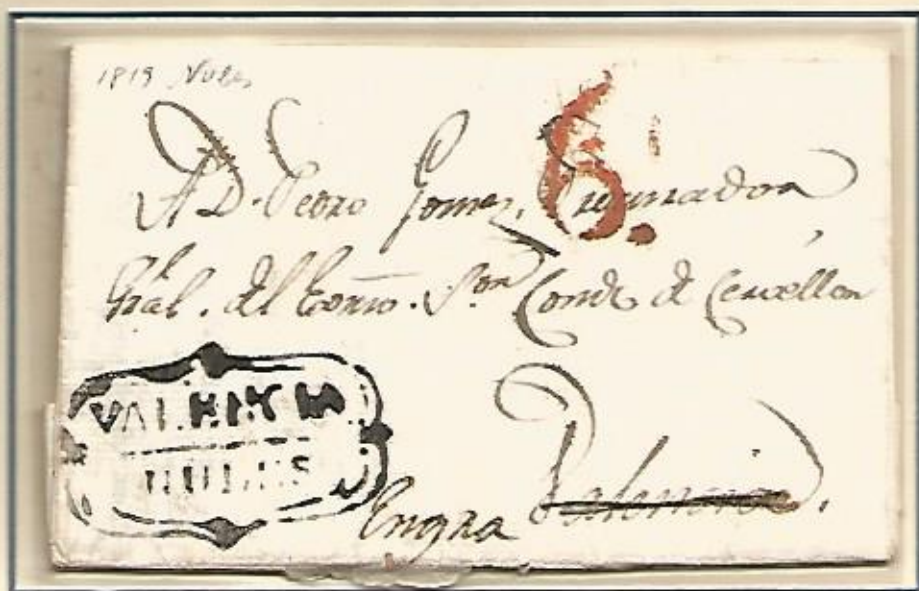 1819 Nules
A D. Pedro Gomez,
6.
Gral. del Exmo. Sor. Conde de Cervellon
VALENCIA
NULES
Engra Valencia.